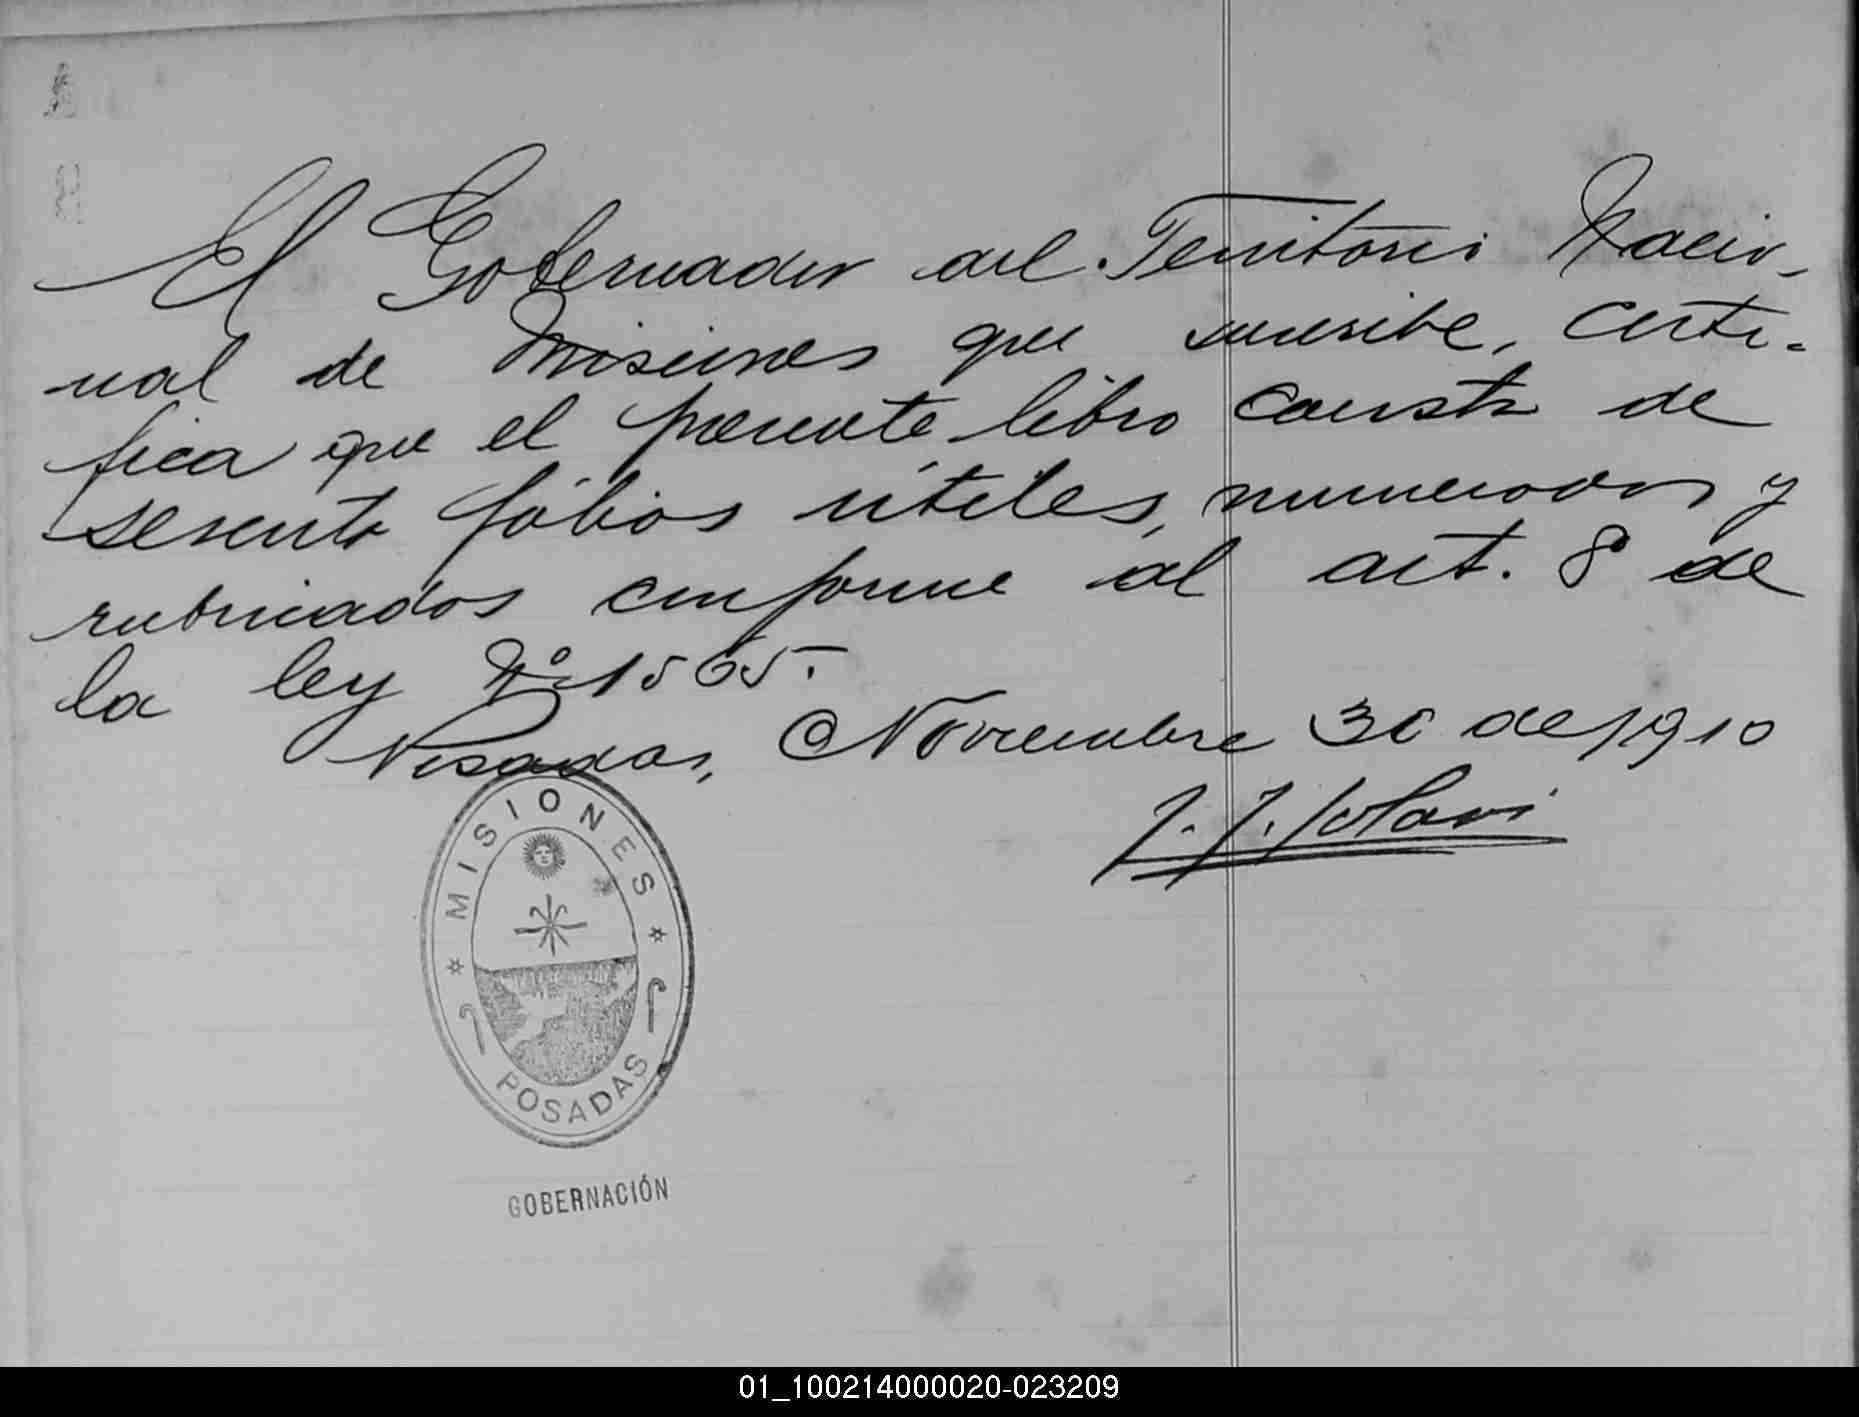 El Gobernador del Territorio Nacio-
nal de Misiones que suscribe, certi-
fica que el presente libro consta de
sesenta fólios útiles, numerados y
rubricados conforme al art. 8º de
la ley Nº 1565.
Posadas, Noviembre 30 de 1910
J. J. Lanusse
MISIONES
POSADAS
GOBERNACIÓN
01_100214000020-023209